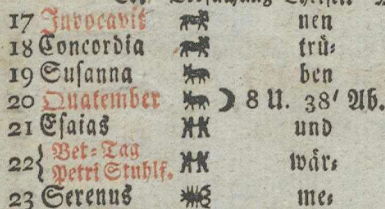 17 Invocavit nen
18 Concordia trü-
19 Susanna ben
20 Quatember ☽ 8 U. 38' Ab.
21 Esaias und
22 { Bet-Tag
Petri Stuhlf. wär-
23 Serenus me-